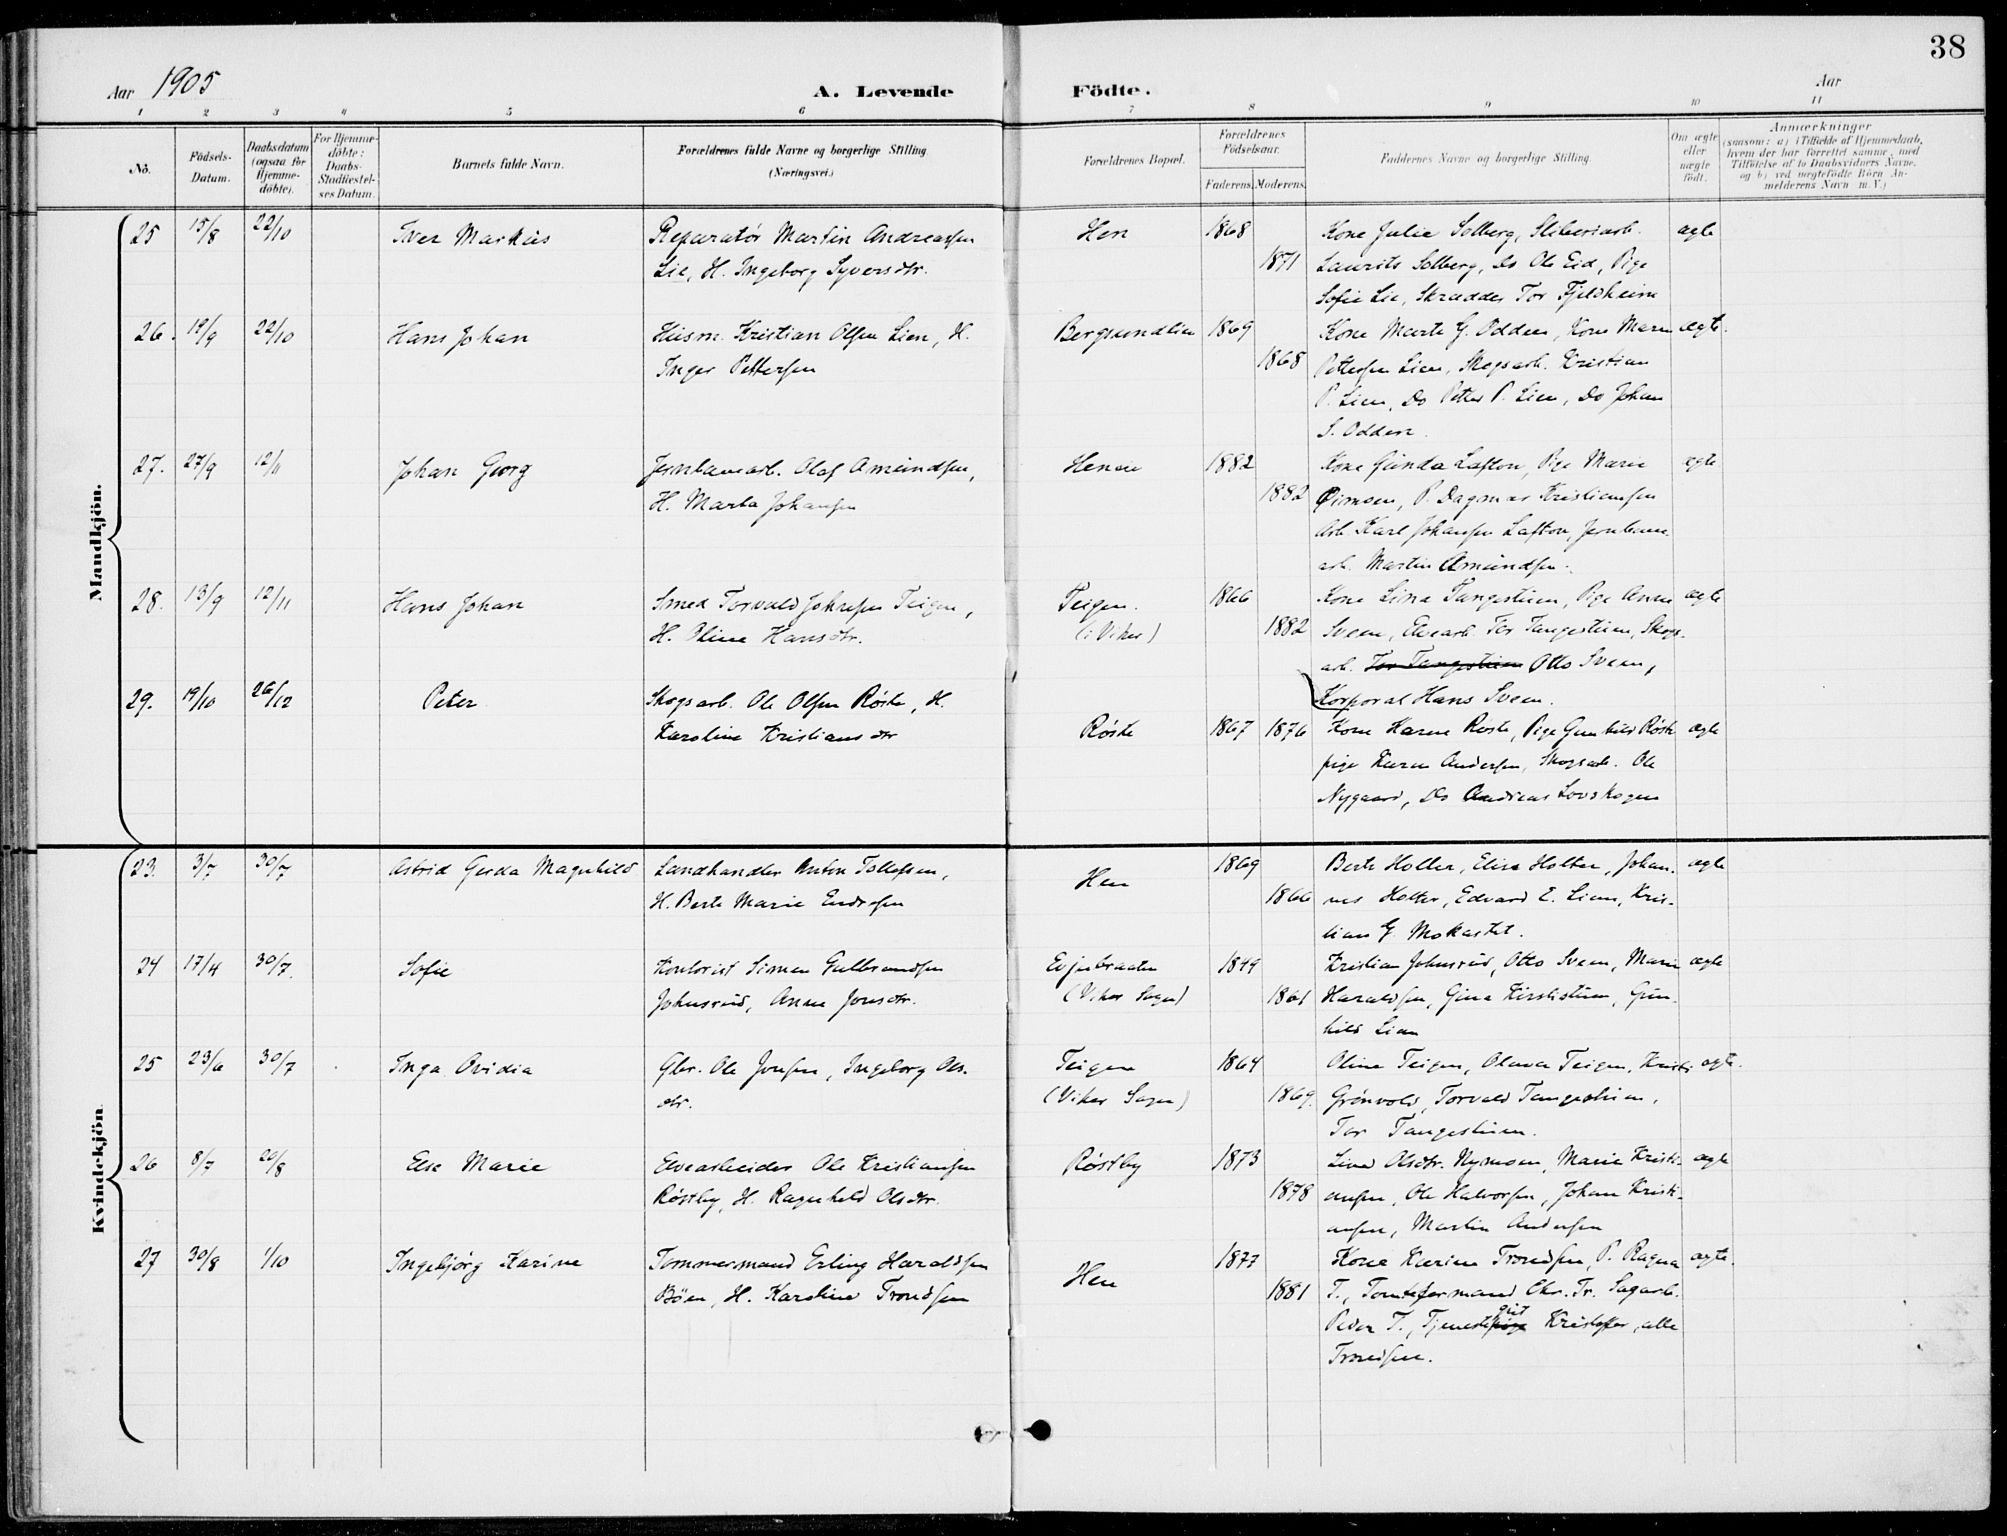 38
Aar 1905
A. Levende Födte.
Aar
1 2 3 4 5 6 7 8 9 10 11
No.
Födsels-Datum.
Daabsdatum (ogsaa for Hjemme-döbte).
For Hjemme-döbte: Daabs-Stadfæstel-ses Datum.
Barnets fulde Navn.
Forældrenes fulde Navne og borgerlige Stilling (Næringsvei.)
Forældrenes Bopæl.
Forældrenes Födselsaar.
Faderens. Moderens.
Faddernes Navne og borgerlige Stilling.
Om ægte eller uægte födt.
Anmærkninger
(saasom: a) i Tilfælde af Hjemmedaab, hvem der har forrettet samme, med Tilföielse af to Daabsvidners Navne, og b) ved uægtefödte Börn An-melderens Navn m.V.)
Mandkjön.
25 15/8 22/10 Iver Markus Reparatør Martin Andreassen Hen 1868 Kone Julie Solberg, Sliberiarb. ægte
Lie, H. Ingeborg Syversdtr. 1871 Laurits Solberg, Do Ole Eid, Pige
Sofie Lie, Skrædder Tor Fjeldheim
26. 19/9 22/10 Hans Johan Husm. Kristian Olsen Lien, H. Bergsundlien 1869 Kone Marte G. Odden, Kone Maren ægte.
Inger Pettersen 1868 Pettersen Lien, Skogsarb. Kristian
P. Lien, Do Petter P. Lien, Do Johan
S. Odden.
27. 27/9 12/11 Johan Georg Jernbanearb. Olaf Amundsen, Heneie 1882 Kone Gunda Lafton, Pige Marie ægte
H. Marta Johansen 1882 P. Dagmar Kristiansen
Arb. Karl Johansen Lafton, Jernbane-
arb. Martin Amundsen.
28. 13/9 12/11 Hans Johan Smed Torvald Johnsen Teigen, Teigen. 1866 Kone Lina Tangestuen, Pige Anne ægte
H. Oline Hansdtr. (i Viker) 1882 Sveen, Elvearb. Tor Tangestuen, Skogs-
arb. Tor Tangestuen Otto Sveen,
Korporal Hans Sveen.
29. 19/10 26/12 Peter Skogsarb. Ole Olsen Røste, H.
Karoline Kristiansdtr Røste 1867 1876 Kone Karen Røste, Pige Gunhild Røste ægte
pige Karen Andersen, Skogsarb. Ole
Nygaard, Do Andreas Lovskogen
Kvindekjön.
23. 3/7 30/7 Astrid Gerda Magnhild Landhandler Anton Tollefsen, Hen 1869 Berte Holter, Elise Holter, Johan- ægte
H. Berte Marie Endresen 1866 nes Holter, Edvard E. Lien, Kris-
tian G. Mokastet.
24 17/4 30/7. Sofie Kontorist Simen Gulbrandsen Evjebraaten 1849 Kristian Johnsrud, Otto Sveen, Marie ægte
Johnsrud, Anne Jonsdtr. (Viker Sogn) 1861 Haraldsen, Gina Kirstistuen, Gun-
hild Lien
25 23/6 30/7 Inga Ovidia Gbr. Ole Jonsen, Ingeborg Ols- Teigen 1864 Oline Teigen, Olava Teigen, Kristi ægte.
dtr. (Viker Sogn) 1869. Grønvold, Torvald Tangestuen,
Tor Tangestuen.
26 8/7 20/8 Else Marie Elvearbeider Ole Kristiansen Røstby 1873 Lina Olsdtr. Nymoen, Marie Kristi- ægte
Røstby, H. Ragnhild Olsdtr. 1878 ansen, Ole Halvorsen, Johan Kristi-
ansen, Martin Andersen
27 30/8 1/10 Ingebjørg Karine Tommermand Erling Haraldsen Hen 1877 Kone Karine Trondsen, P. Ragna ægte.
Böen, H. Karoline Trondsen 1881 T., Tomteformand Chr. Tr. Sagarb.
Peder T., Tjenestepige gut Kristoffer, alle
Trondsen.